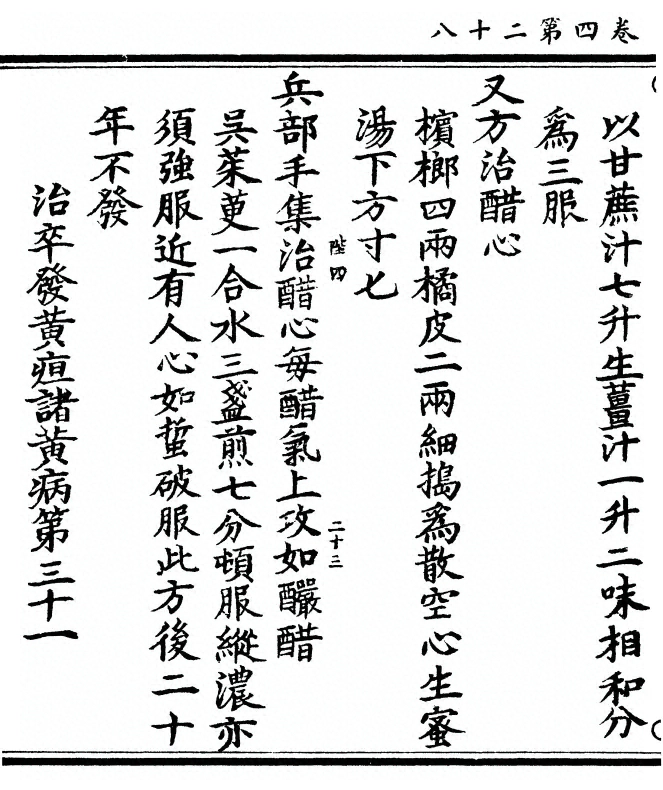 卷四第二十八
以甘蔗汁七升生薑汁一升二味相和分
爲三服
又方治醋心
檳榔四兩橘皮二兩細搗爲散空心生蜜
湯下方寸匕
陛四
二十三
兵部手集治醋心每醋氣上攻如釅醋
吳茱萸一合水三盞煎七分頓服縱濃亦
須強服近有人心如蜇破服此方後二十
年不發
治卒發黃疸諸黃病第三十一